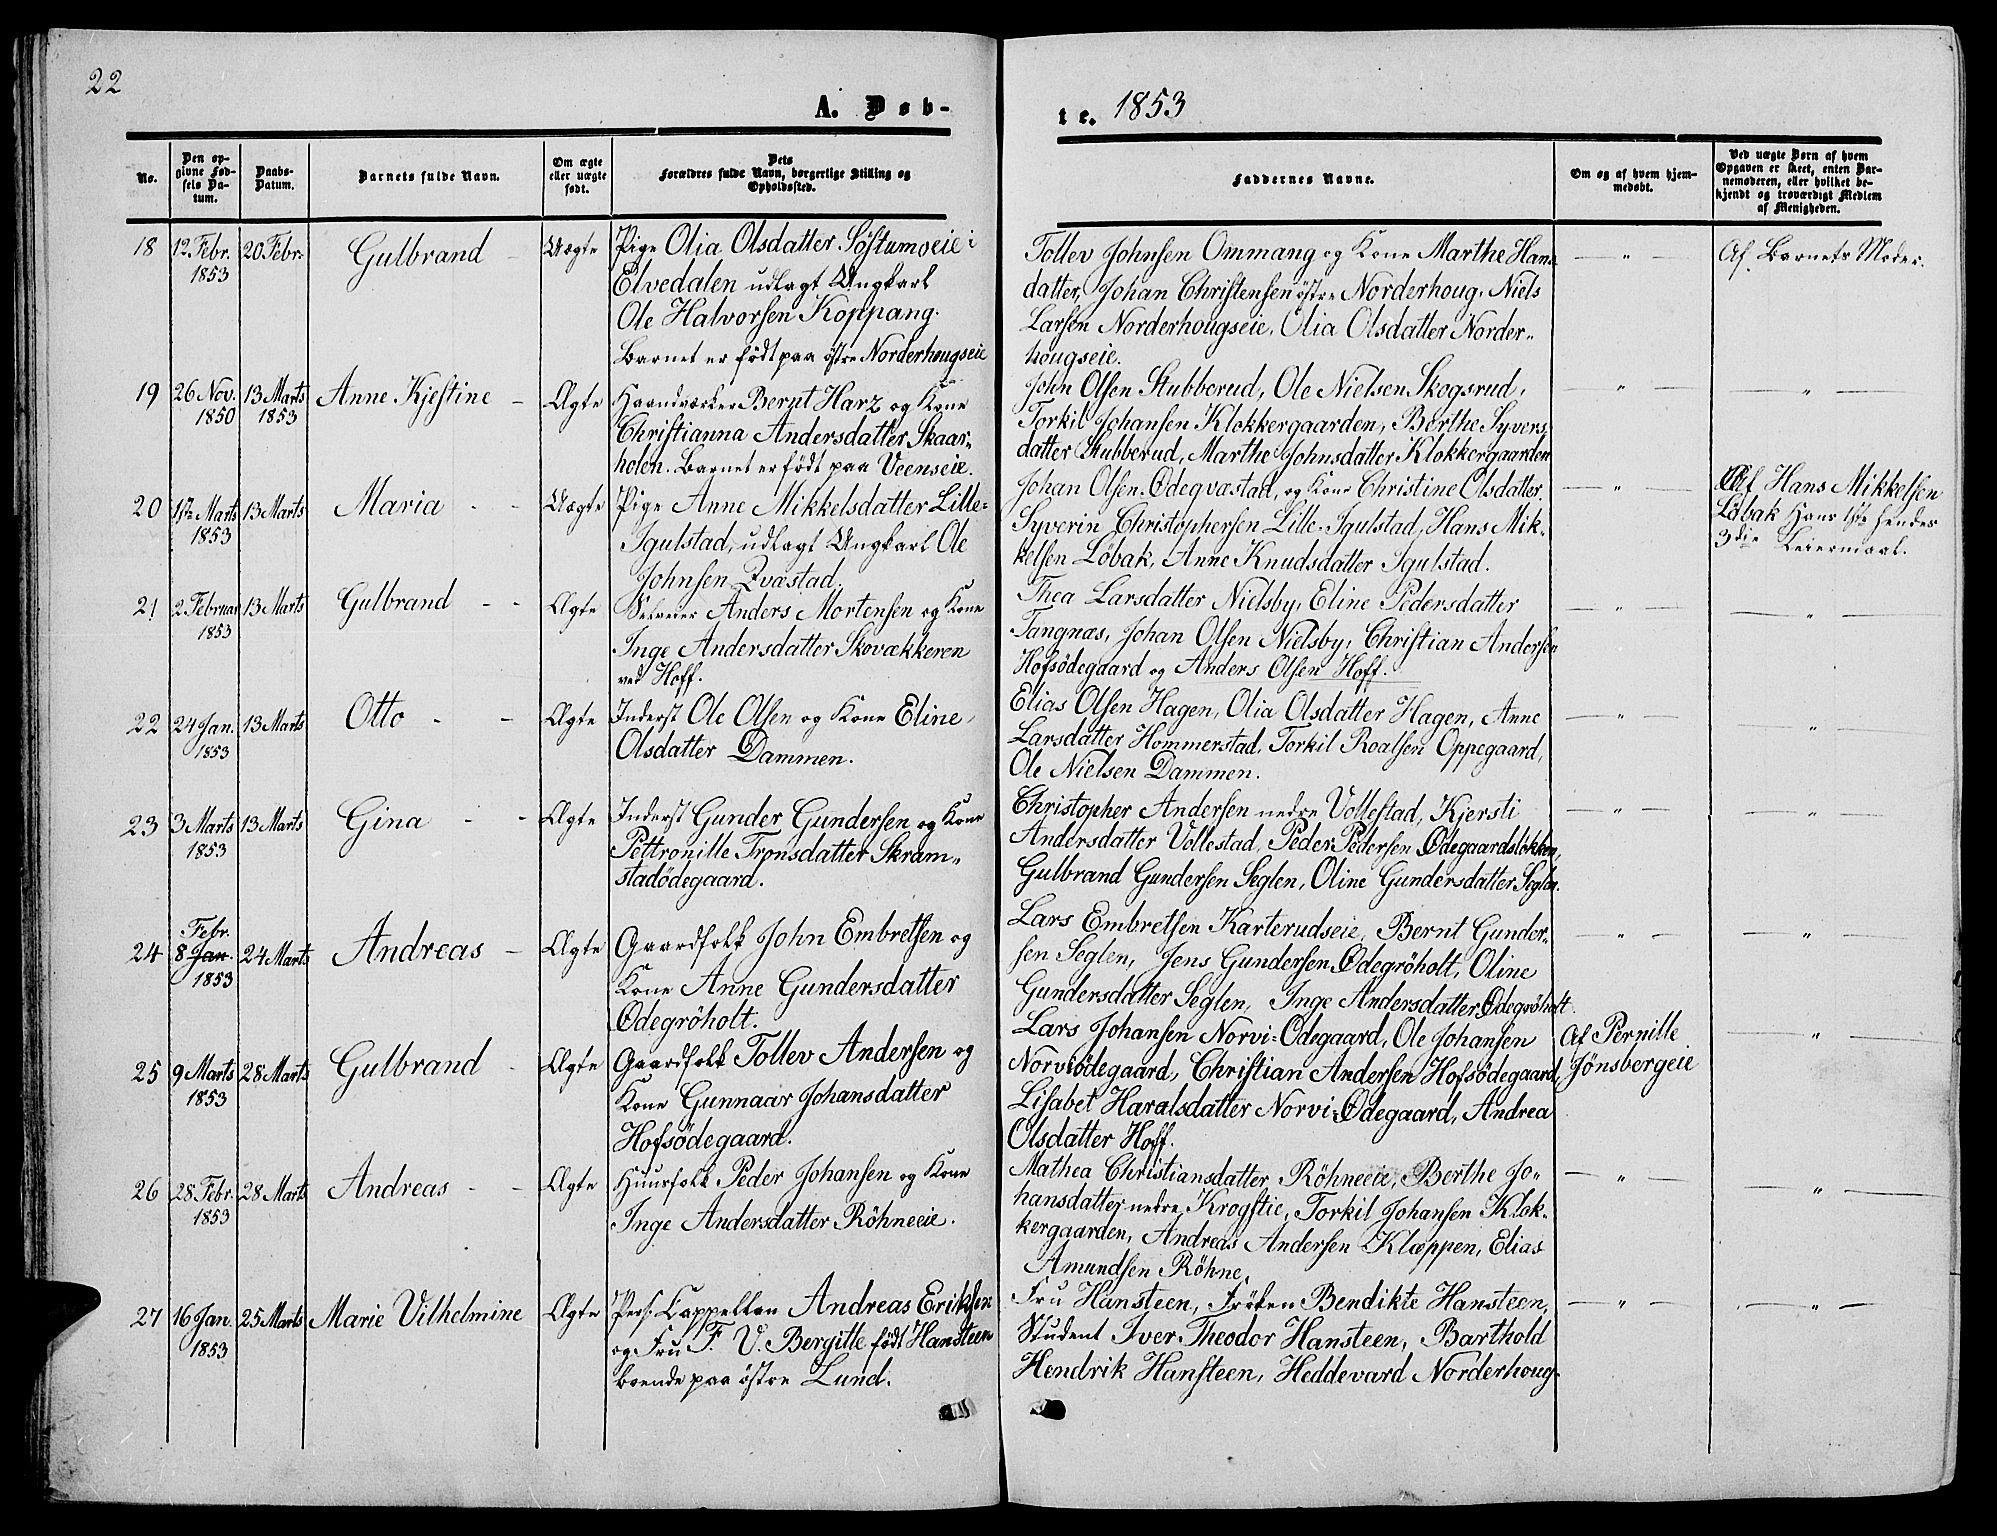 22
A. Døb-
te. 1853
No.
Den op-
givne Fød-
sels Da-
tum.
Daabs-
Datum.
Barnets fulde Navn.
Om ægte
eller uægte
født.
Dets
Forældres fulde Navn, borgerlige Stilling og
Opholdssted.
Faddernes Navne.
Om og af hvem hjem-
medøbt.
Ved uægte Børn af hvem
Opgaven er skeet, enten Bar-
nemoderen, eller hvilket be-
kjendt og troværdigt Medlem
af Menigheden.
18 12 Febr. 1853 20 Febr. Gulbrand - Uægte
Pige Olia Olsdatter Söstumoeie i
Elvedalen udlagt Ungkarl
Ole Halvorsen Koppang.
Barnet er födt paa östre Norderhougseie
Tollev Johnsen Ommang og Kone Marthe Hans
datter, Johan Christensen östre Norderhoug, Niels
Larsen Norderhougseie, Olia Olsdatter Norder-
hougseie.
— " —
Af Barnets Moder.
19 26 Nov. 1850 13 Marts 1853 Anne Kjestine - Ægte
Haandværker Bernt Harz og Kone
Christianna Andersdatter Skaar-
holen. Barnet er födt paa Veenseie.
John Olsen Stubberud, Ole Nielsen Skogsrud,
Torkil Johansen Klokkergaarden, Berthe Syvers
datter Stubberud, Marthe Johnsdatter Klokkergaarden
— " — — " —
20 1ste Marts 1853 13 Marts Maria - - Uægte
Pige Anne Mikkelsdatter Lille-
Igulstad, udlagt Ungkarl Ole
Johnsen Qvastad.
Johan Olsen Ödeqvastad, og Kone Christine Olsdatter.
Syverin Christophersen Lille-Igulstad, Hans Mik-
kelsen Löbak, Anne Knudsdatter Igulstad.
— " —
Af Hans Mikkelsen
Löbak Hans 1ste hendes
3die Leiermaal.
21 2 Februar 1853 13 Marts Gulbrand - - Ægte
Selveier Anders Mortensen og Kone
Inge Andersdatter Skovækkeren
ved Hoff.
Thea Larsdatter Nielsby, Eline Pedersdatter
Tangnæs, Johan Olsen Nielsby, Christian Andersen
Hofsödegaard og Anders Olsen Hoff.
— " — — " —
22 24 Jan. 1853 13 Marts Otto - - Ægte
Inderst Ole Olsen og Kone Eline
Olsdatter Dammen.
Elias Olsen Hagen, Olia Olsdatter Hagen, Anne
Larsdatter Hommerstad, Torkil Roalsen Oppegaard,
Ole Nielsen Dammen.
— " — — " —
23 3 Marts 1853 13 Marts Gina - - Ægte
Inderst Gunder Gundersen og Kone
Pettronille Tronsdatter Skram-
stadödegaard.
Christopher Andersen nedre Vollestad, Kjersti
Andersdatter Vollestad, Peder Pedersen Ödegaardslökken,
Gulbrand Gundersen Seglen, Oline Gundersdatter Seglen.
— " — — " —
24 Febr. 8 Jan. 1853 24 Marts Andreas - Ægte
Gaardfolk John Embretsen og
Kone Anne Gundersdatter
Ödegröholt.
Lars Embretsen Karterudseie, Bernt Gunder-
sen Seglen, Jens Gundersen Ödegröholt, Oline
Gundersdatter Seglen, Inge Andersdatter Ödegröholt.
— " — — " —
25 9 Marts 1853 28 Marts Gulbrand - Ægte
Gaardfolk Tollev Andersen og
Kone Gunnaar Johansdatter
Hofsödegaard.
Lars Johansen Norvi-Ödegaard, Ole Johansen
Norviödegaard, Christian Andersen Hofsödegaard,
Lisabet Haralsdatter Norvi-Ödegaard, Andrea
Olsdatter Hoff.
Af Pernille
Jönsbergeie
— " —
26 28 Febr. 1853 28 Marts Andreas - - Ægte
Huusfolk Peder Johansen og Kone
Inge Andersdatter Röhneeie.
Mathea Christiansdatter Röhneeie, Berthe Jo-
hansdatter nedre Krogstie, Torkil Johansen Klok-
kergaarden, Andreas Andersen Klæppen, Elias
Amundsen Röhne.
— " — — " —
27 16 Jan. 1853 25 Marts Marie Vilhelmine Ægte
Pers. Cappellan Andreas Eriksen
og Fru F. V. Bergitte födt Hansteen
boende paa östre Lund.
Fru Hansteen, Fröken Bendikte Hansteen,
Student Iver Theodor Hansteen, Barthold
Hendrik Hansteen, Heddevard Norderhoug.
— " — — " —